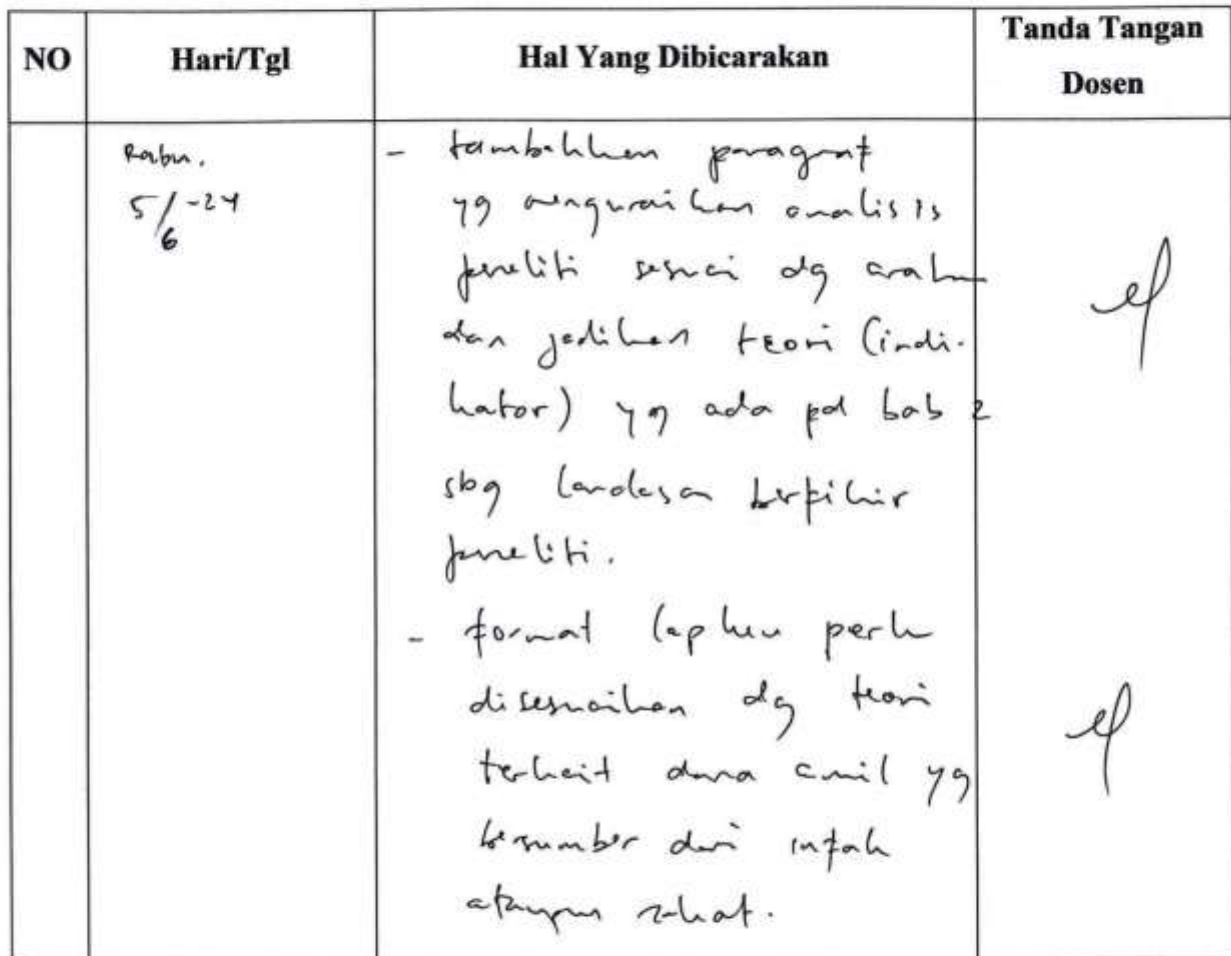 NO
Hari/Tgl
Hal Yang Dibicarakan
Tanda Tangan
Dosen
Rabu.
5/6-24
- tambahkan paragraf
yg menguraikan analisis
peneliti sesuai dg arahan
dan jadikan teori (indi-
kator) yg ada pd bab 2
sbg landasan berfikir
peneliti.
- format lapkeu perlu
disesuaikan dg teori
terkait dana amil yg
bersumber dari infak
ataupun zakat.